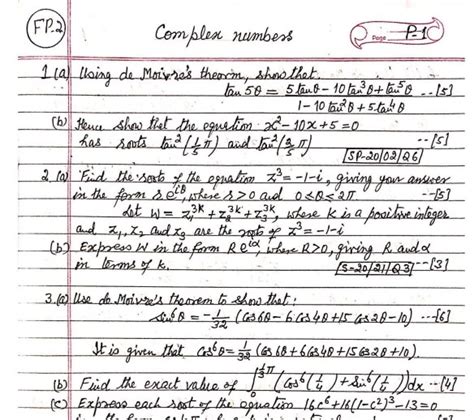 FP.2
Complex numbers
Page P-1
1.(a) Using de Moivre's theorem, show that.
tan 5θ = 5tanθ - 10tan³θ + tan⁵θ --[5]
1 - 10tan²θ + 5tan⁴θ
(b) Hence show that the equation x² - 10x + 5 = 0
has roots tan²(1/5 π) and tan²(2/5 π) --[5]
SP-20/02/Q6
2.(a) Find the roots of the equation z³ = -1-i, giving your answer
in the form re^{iθ}, where r>0 and 0≤θ≤2π. --[5]
Let W = z₁^{3k} + z₂^{3k} + z₃^{3k}, where k is a positive integer
and z₁, z₂ and z₃ are the roots of z³ = -1-i
(b) Express W in the form Re^{iα}, where R>0, giving R and α
in terms of k. S-20/21/Q3 --[3]
3.(a) Use de Moivre's theorem to show that:
sin⁶θ = -1/32 (cos6θ - 6cos4θ + 15cos2θ - 10) ---[6]
It is given that cos⁶θ = 1/32 (cos6θ + 6cos4θ + 15cos2θ + 10).
(b) Find the exact value of ∫₀^{1/3 π} (cos⁶(x/4) + sin⁶(x/4)) dx --[4]
(c) Express each root of the equation 16c⁶ + 16(1-c²)³ - 13 = 0